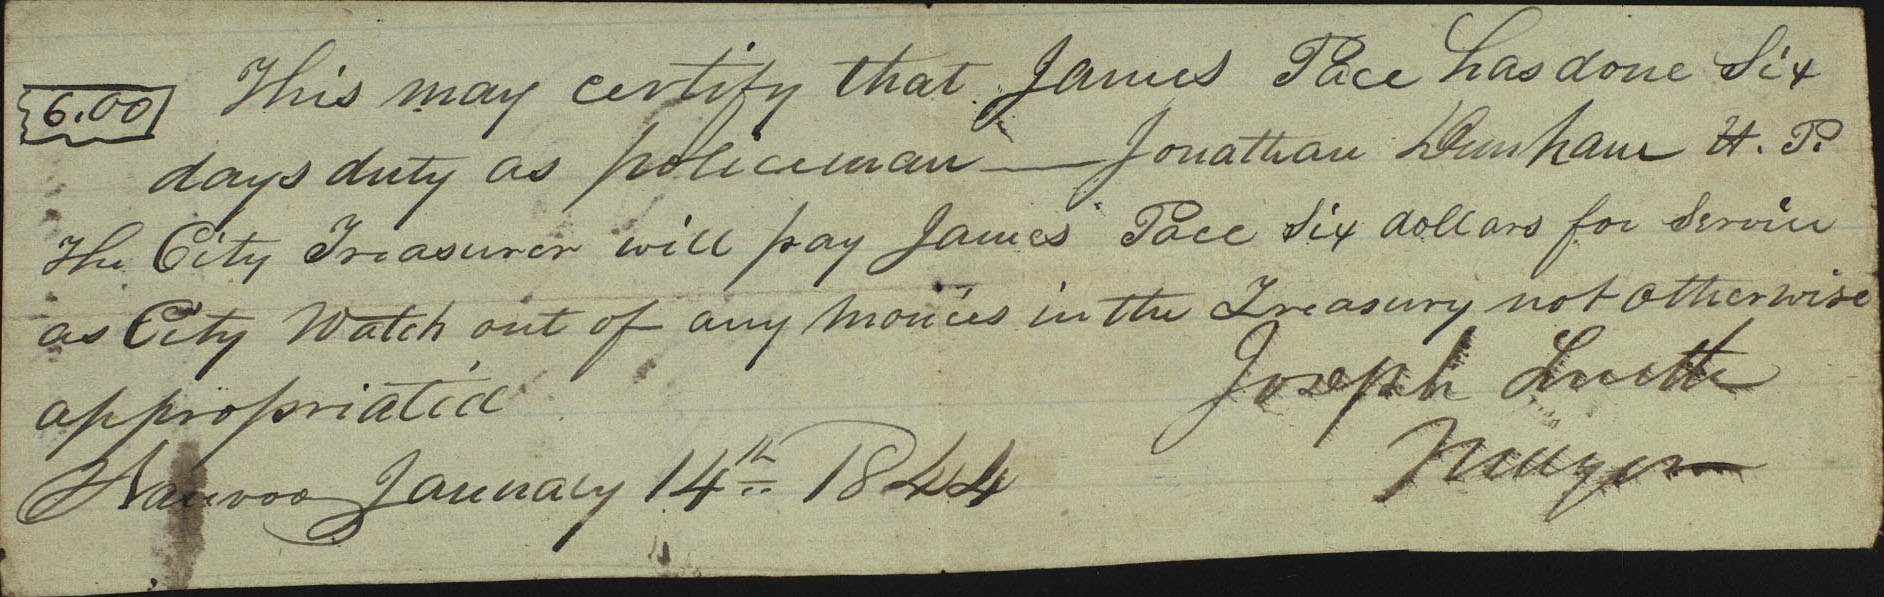 6.00 This may certify that James Pace has done Six
days duty as policeman — Jonathan Dunham H. P.
The City Treasurer will pay James Pace Six dollars for Service
as City Watch out of any Monies in the Treasury not otherwise
appropriated
Joseph Smith
Mayor
Nauvoo January 14th 1844